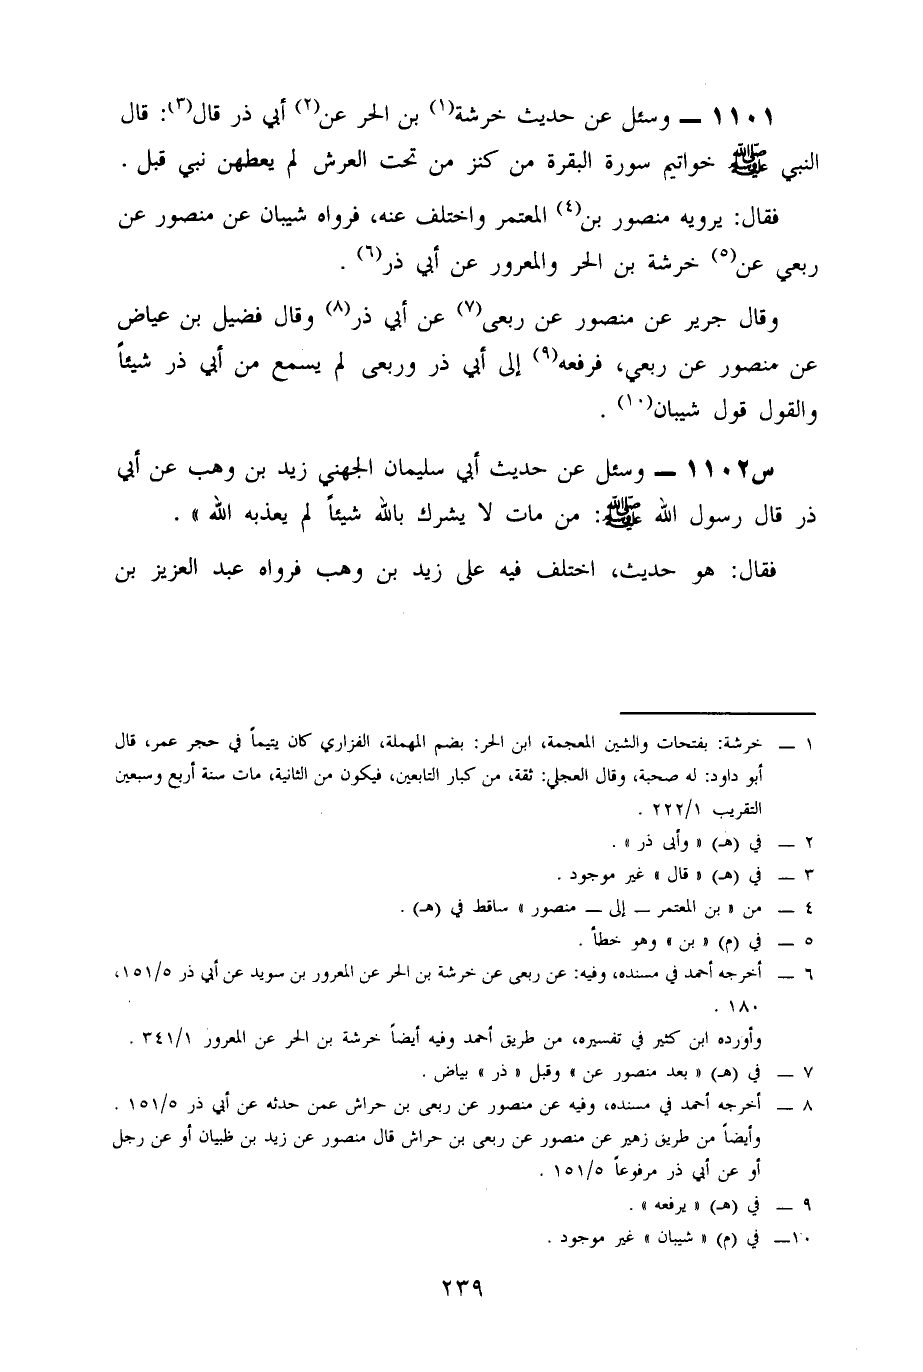 ١١٠١ ــ وسئل عن حديث خرشة(١) بن الحر عن(٢) أبي ذر قال(٣): قال
النبي ﷺ خواتيم سورة البقرة من كنز من تحت العرش لم يعطهن نبي قبل .
فقال: يرويه منصور بن(٤) المعتمر واختلف عنه، فرواه شيبان عن منصور عن
ربعي عن(٥) خرشة بن الحر والمعرور عن أبي ذر(٦) .
وقال جرير عن منصور عن ربعى(٧) عن أبي ذر(٨) وقال فضيل بن عياض
عن منصور عن ربعي، فرفعه(٩) إلى أبي ذر وربعى لم يسمع من أبي ذر شيئاً
والقول قول شيبان(١٠) .
س١١٠٢ ــ وسئل عن حديث أبي سليمان الجهني زيد بن وهب عن أبي
ذر قال رسول الله ﷺ: من مات لا يشرك بالله شيئاً لم يعذبه الله » .
فقال: هو حديث، اختلف فيه على زيد بن وهب فرواه عبد العزيز بن
١ ــ خرشة: بفتحات والشين المعجمة، ابن الحر: بضم المهملة، الفزاري كان يتيماً في حجر عمر، قال
أبو داود: له صحبة، وقال العجلي: ثقة، من كبار التابعين، فيكون من الثانية، مات سنة أربع وسبعين
التقريب ٢٢٢/١ .
٢ ــ في (هـ) « وأبى ذر » .
٣ ــ في (هـ) « قال » غير موجود .
٤ ــ من « بن المعتمر ــ إلى ــ منصور » ساقط في (هـ) .
٥ ــ في (م) « بن » وهو خطأ .
٦ ــ أخرجه أحمد في مسنده، وفيه: عن ربعى عن خرشة بن الحر عن المعرور بن سويد عن أبي ذر ١٥١/٥،
١٨٠ .
وأورده ابن كثير في تفسيره، من طريق أحمد وفيه أيضاً خرشة بن الحر عن المعرور ٣٤١/١ .
٧ ــ في (هـ) « بعد منصور عن » وقبل « ذر » بياض .
٨ ــ أخرجه أحمد في مسنده، وفيه عن منصور عن ربعى بن حراش عمن حدثه عن أبي ذر ١٥١/٥ .
وأيضاً من طريق زهير عن منصور عن ربعى بن حراش قال منصور عن زيد بن ظبيان أو عن رجل
أو عن أبي ذر مرفوعاً ١٥١/٥ .
٩ ــ في (هـ) « يرفعه » .
١٠ــ في (م) « شيبان » غير موجود .
٢٣٩